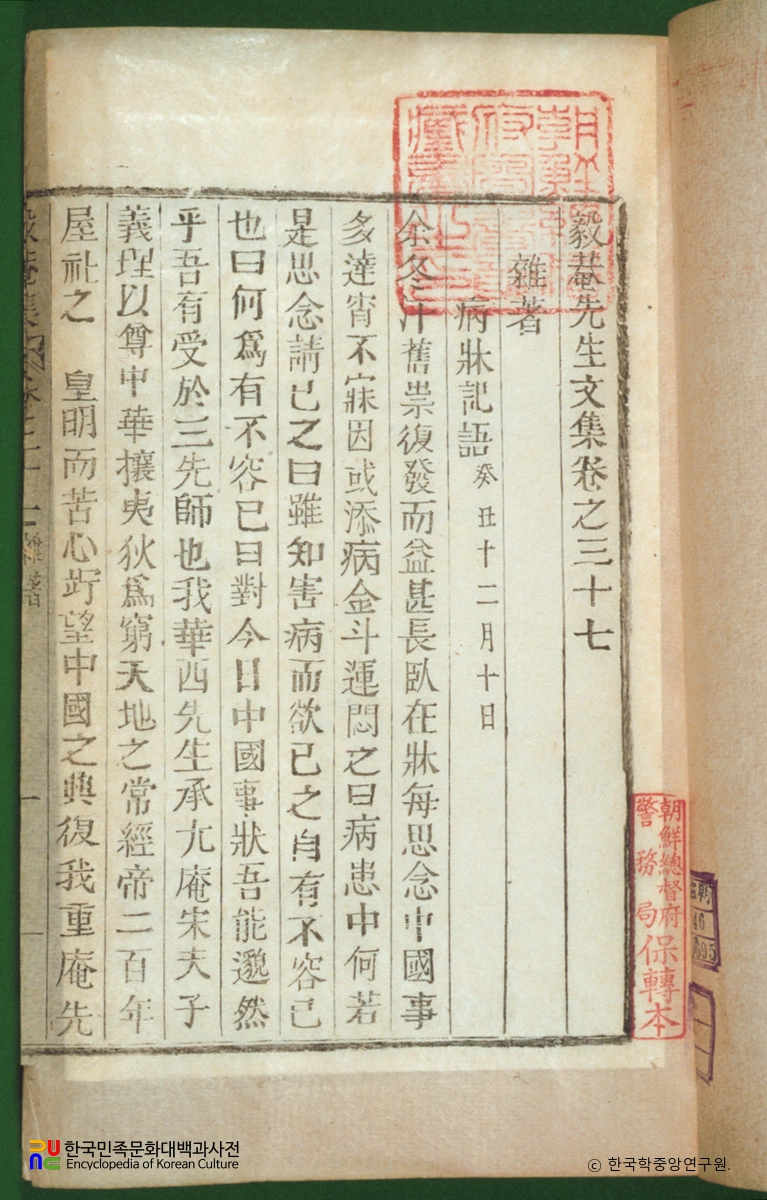 毅菴先生文集卷之三十七
雜著
病牀記語 癸丑十二月十日
余冬汁舊祟復發而益甚長臥在牀每思念中國事
多達宵不寐因或添病金斗運悶之曰病患中何若
是思念請已之曰雖知害病而欲已之自有不容已
也曰何爲有不容已曰對今日中國事狀吾能邈然
乎吾有受於三先師也我華西先生承尤庵宋夫子
義理以尊中華攘夷狄爲窮天地之常經帝二百年
屋社之 皇明而苦心跂望中國之興復我重庵先
雜著
一
朝鮮總督府
警務局保轉本
한국민족문화대백과사전
Encyclopedia of Korean Culture
© 한국학중앙연구원.